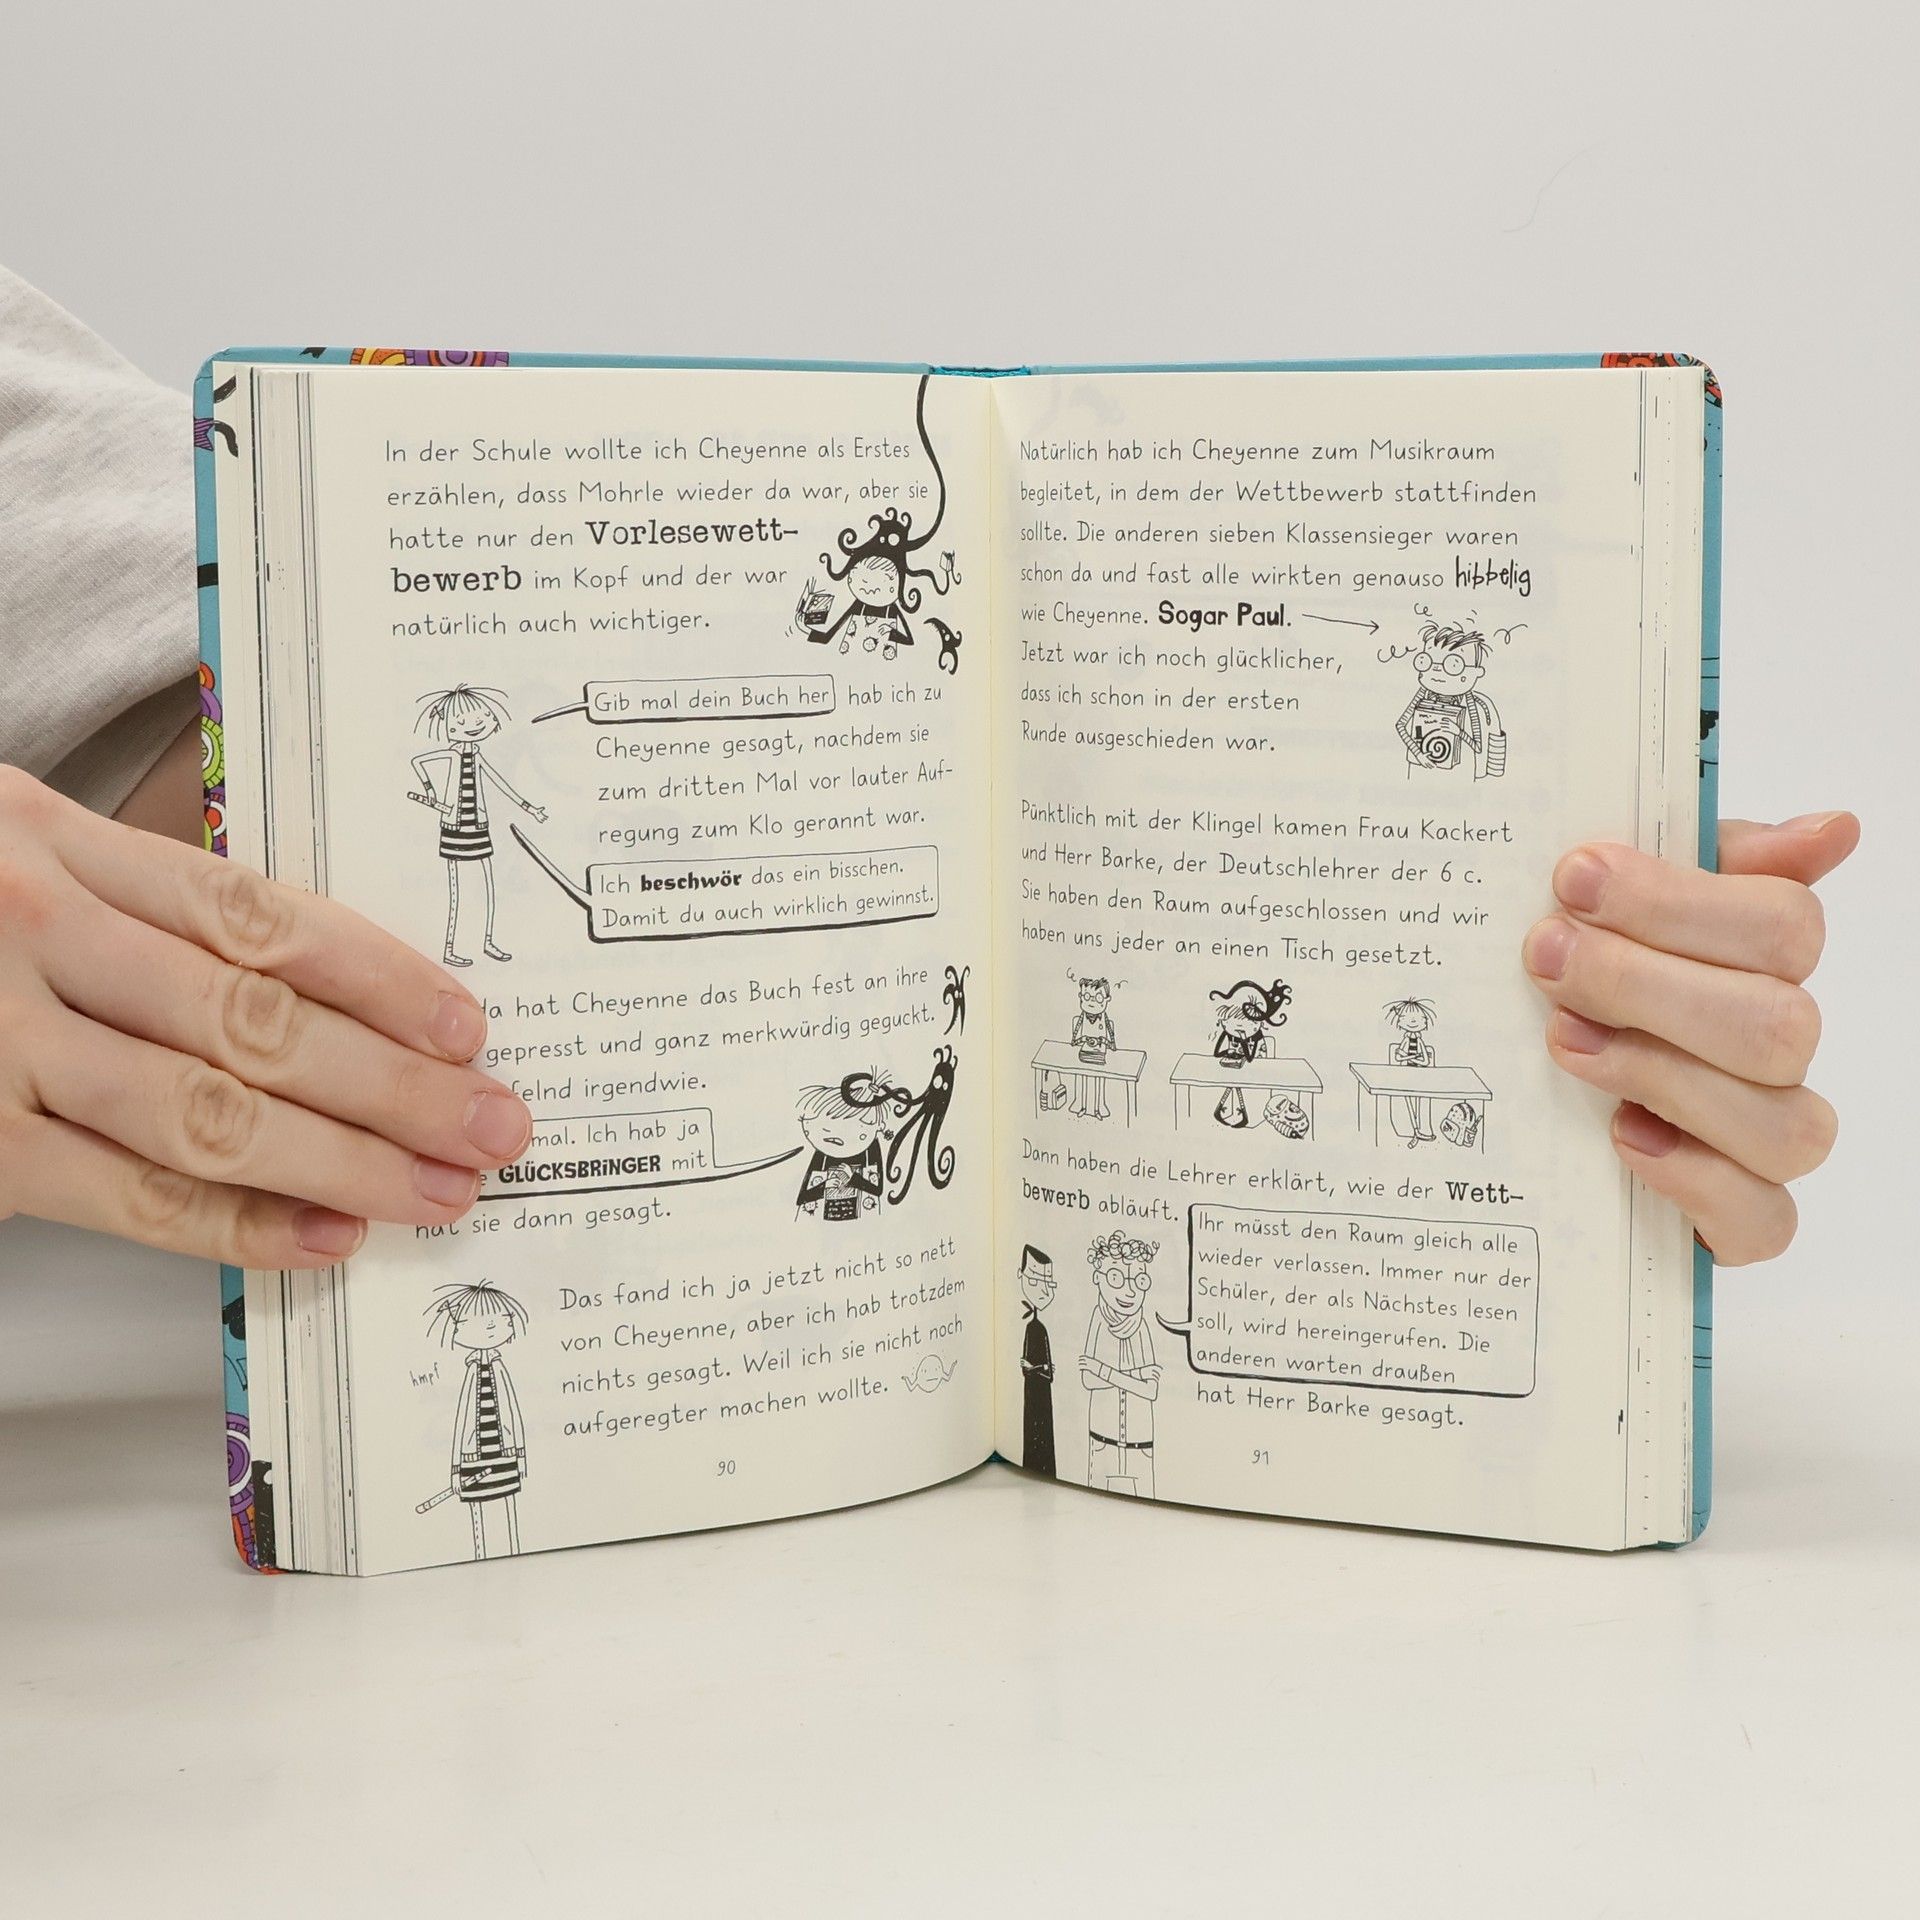 In der Schule wollte ich Cheyenne als Erstes
erzählen, dass Mohrle wieder da war, aber sie
hatte nur den Vorlesewett-
bewerb im Kopf und der war
natürlich auch wichtiger.
Gib mal dein Buch her hab ich zu
Cheyenne gesagt, nachdem sie
zum dritten Mal vor lauter Auf-
regung zum Klo gerannt war.
Ich beschwör das ein bisschen.
Damit du auch wirklich gewinnst.
da hat Cheyenne das Buch fest an ihre
gepresst und ganz merkwürdig geguckt.
felnd irgendwie.
mal. Ich hab ja
GLÜCKSBRiNGER mit
hat sie dann gesagt.
hmpf
Das fand ich ja jetzt nicht so nett
von Cheyenne, aber ich hab trotzdem
nichts gesagt. Weil ich sie nicht noch
aufgeregter machen wollte.
90
Natürlich hab ich Cheyenne zum Musikraum
begleitet, in dem der Wettbewerb stattfinden
sollte. Die anderen sieben Klassensieger waren
schon da und fast alle wirkten genauso hibbelig
wie Cheyenne. Sogar Paul.
Jetzt war ich noch glücklicher,
dass ich schon in der ersten
Runde ausgeschieden war.
Pünktlich mit der Klingel kamen Frau Kackert
und Herr Barke, der Deutschlehrer der 6 c.
Sie haben den Raum aufgeschlossen und wir
haben uns jeder an einen Tisch gesetzt.
Dann haben die Lehrer erklärt, wie der Wett-
bewerb abläuft.
Ihr müsst den Raum gleich alle
wieder verlassen. Immer nur der
Schüler, der als Nächstes lesen
soll, wird hereingerufen. Die
anderen warten draußen
hat Herr Barke gesagt.
91